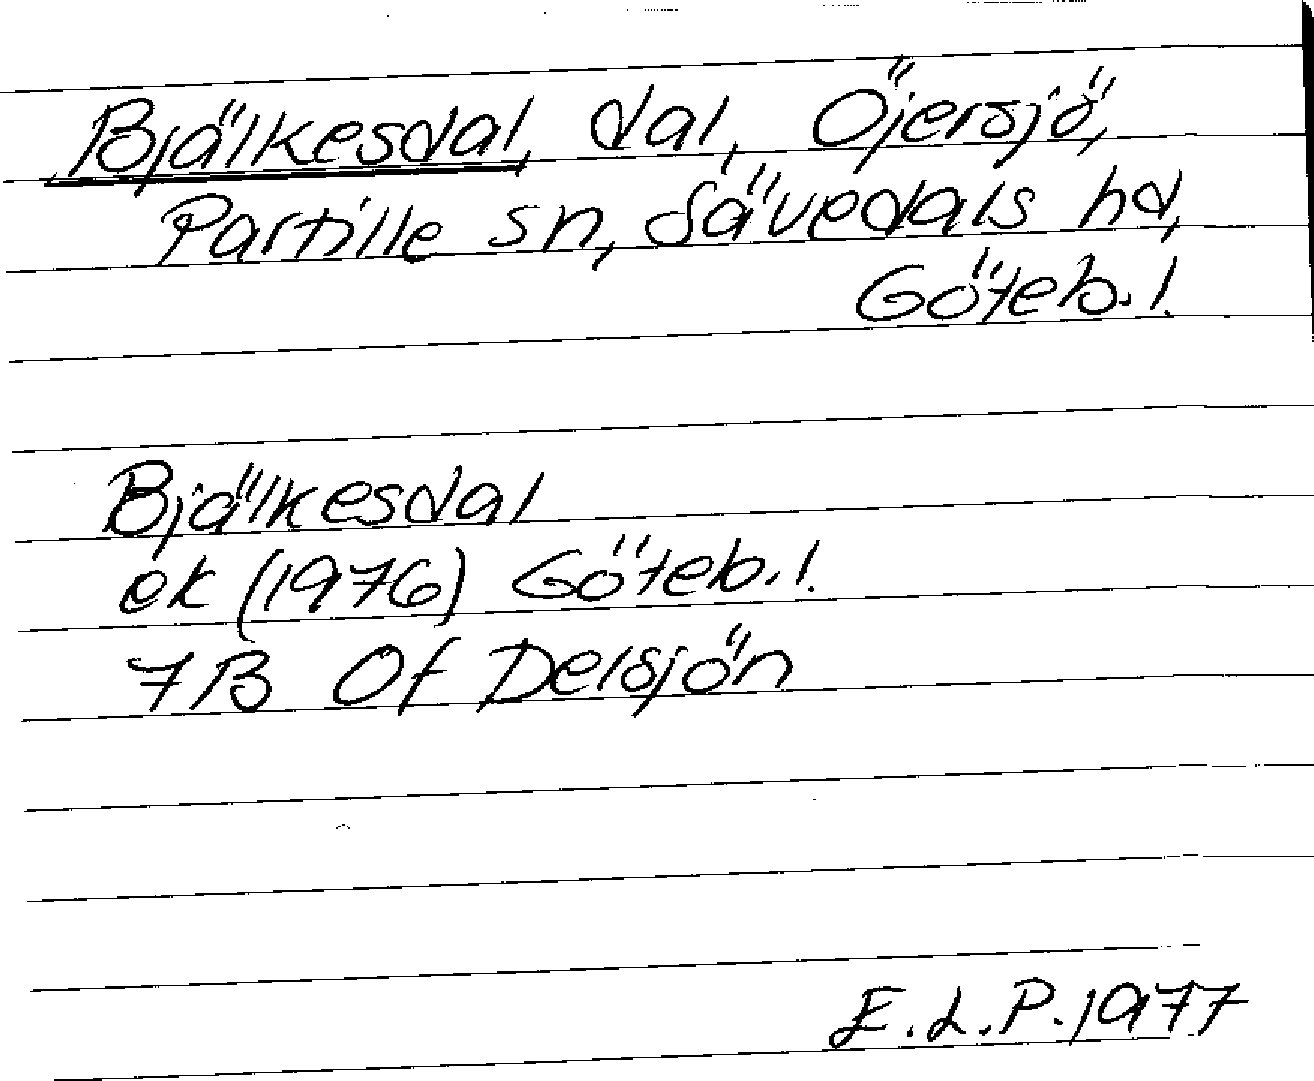 Bjälkesdal, dal, Öjersjö,
Partille sn, Sävedals hd,
Göteb. l.
Bjälkesdal
ek (1976) Göteb. l.
7B Of Delsjön
E.L.P. 1977